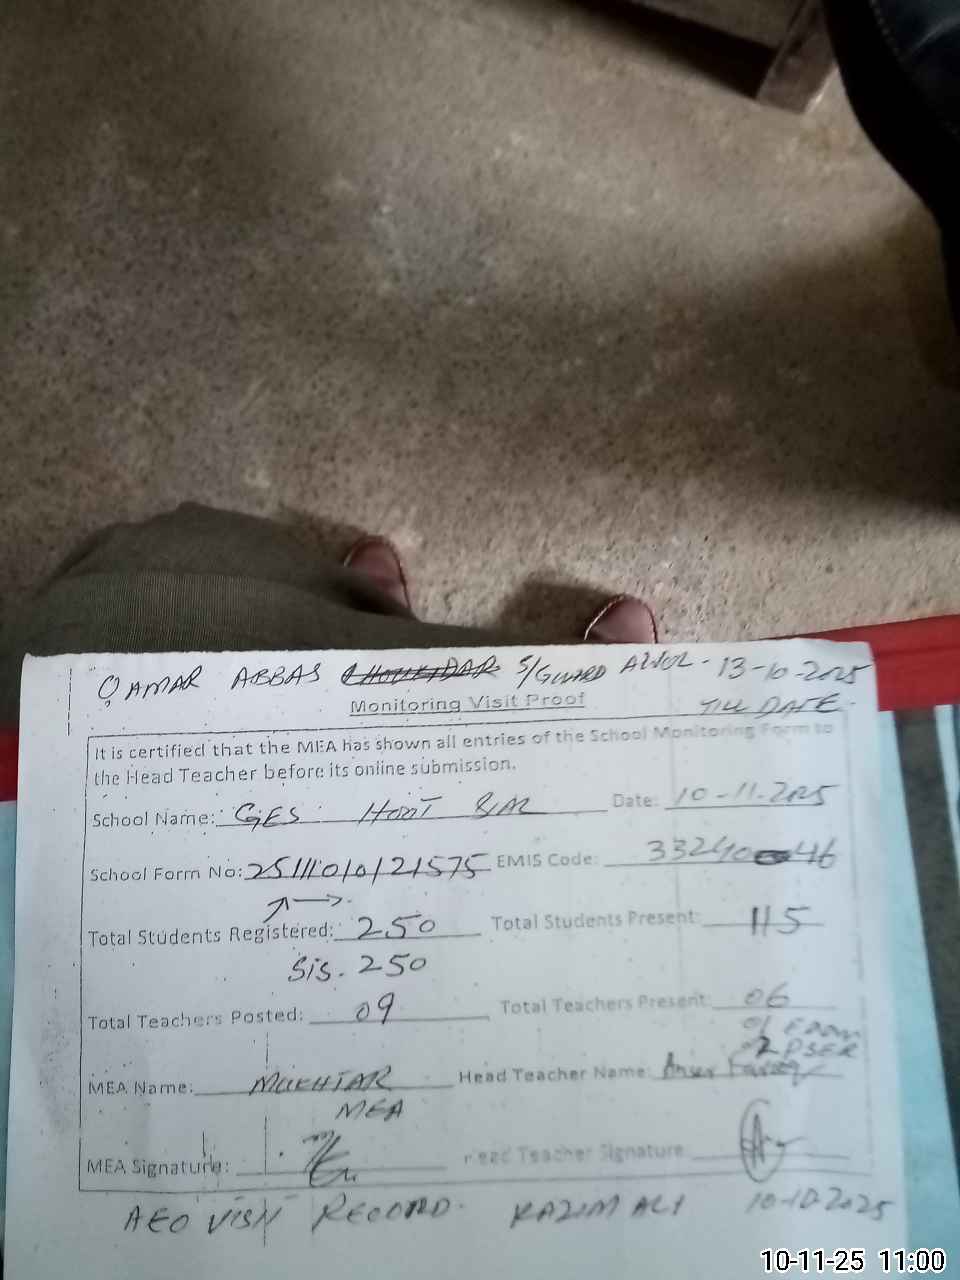 QAMAR ABBAS S/GUARD 13-10-2025
Monitoring Visit Proof TILL DATE
It is certified that the MEA has shown all entries of the School Monitoring Form to
the Head Teacher before its online submission.
School Name: GES Date: 10-11-2025
School Form No: EMIS Code:
Total Students Registered: 250 Total Students Present: 115
Sis. 250
Total Teachers Posted: 09 Total Teachers Present: 06
01 EXAM
02 PSER
MEA Name: MUKHTAR Head Teacher Name:
MEA
MEA Signature: Head Teacher Signature
AEO VISIT RECORD. KAZIM ALI 10-10-2025
10-11-25 11:00